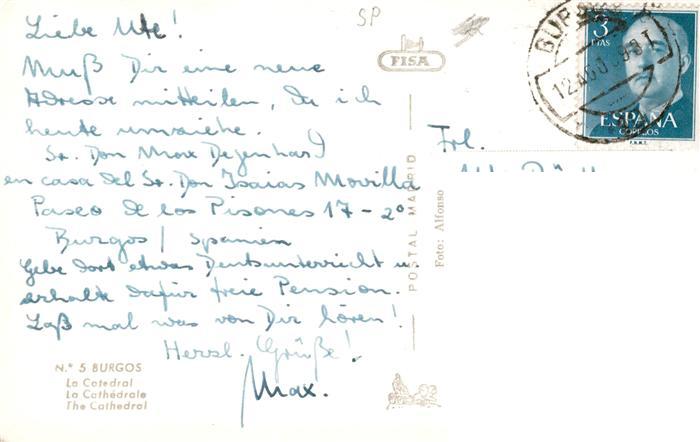 Liebe Ute!
SP
Muß Dir eine neue
Adresse mitteilen, da ich
heute umziehe.
Sr. Don Max Degenhard
en casa del Sr. Don Isaias Movilla
Paseo de los Pisones 17 - 2º
Burgos / Spanien
Gebe dort etwas Deutschunterricht u.
erhalte dafür freie Pension.
Laß mal was von Dir hören!
Herzl. Grüße!
Max.
N.º 5 BURGOS
La Catedral
La Cathédrale
The Cathedral
FISA
POSTAL MADRID
Foto: Alfonso
3
PTAS
ESPAÑA
CORREOS
F.N.M.T.
BURGOS
12 AGO
Frl.